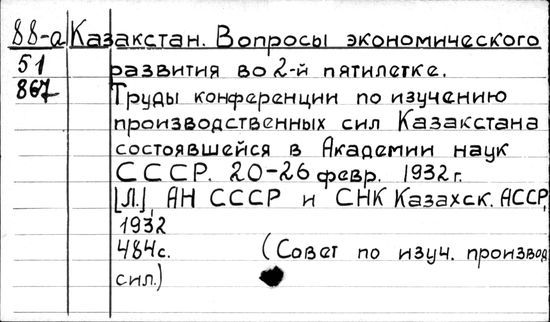 88-а Казакстан. Вопросы экономического
51 развития во 2-й пятилетке.
867 Труды конференции по изучению
производственных сил Казакстана
состоявшейся в Академии наук
СССР. 20-26 февр. 1932 г.
[Л.], АН СССР и СНК Казахск. АССР,
1932
484с. (Совет по изуч. производ
сил.)